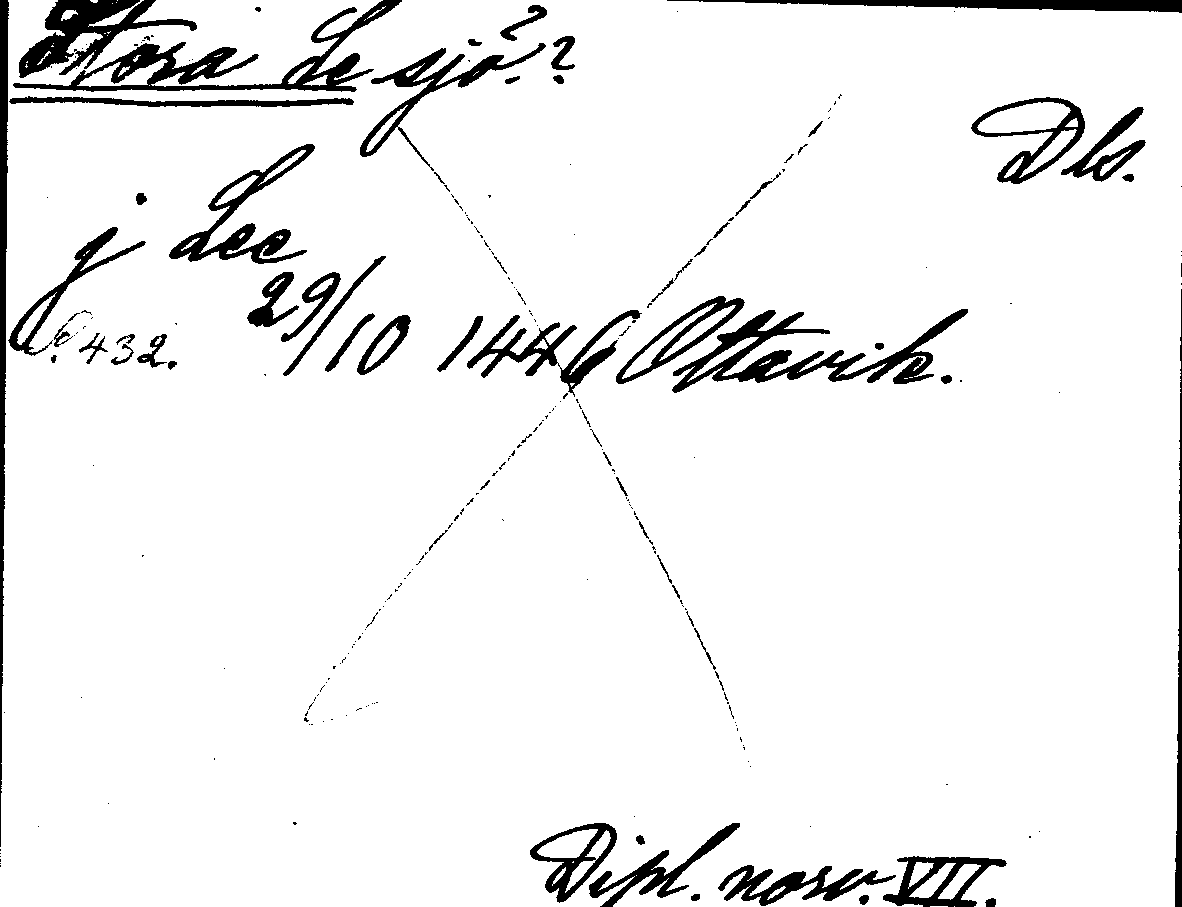 Stora Le sjö.??
Dls.
j Lee
S. 432. 29/10 1446 Ottavik.
Dipl. norv. VII.